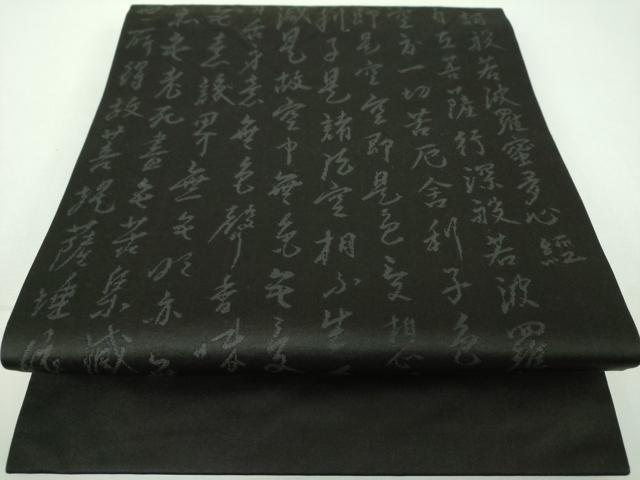 訶般若波羅蜜多心經
自在菩薩行深般若波羅
空度一切苦厄舍利子色
即是空空即是色受想
利子是諸法空相不生
減是故空中無色無受
舌身意無色聲香味
無意識界無無明亦無
無老死盡無苦集滅
所得故菩提薩埵